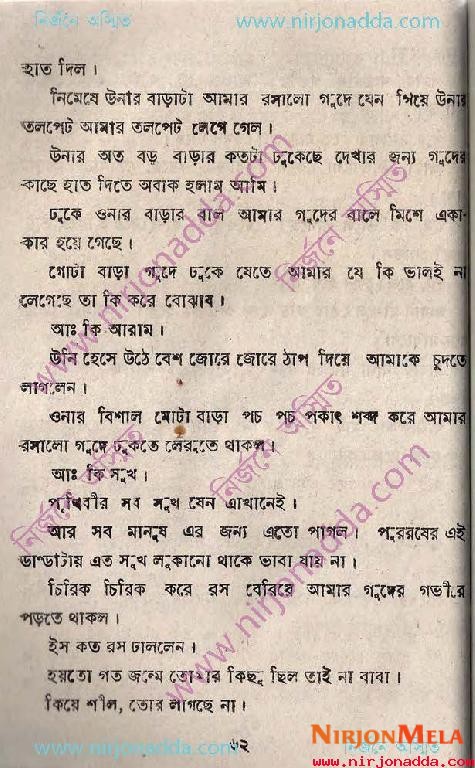 নির্জনে অস্মিত www.nirjonadda.com
হাত দিল।
নিমেষে উনার বাড়াটা আমার রসালো গুদে যেন গিয়ে উনার
তলপেট আমার তলপেট লেগে গেল।
উনার অত বড় বাড়ার কতটা ঢুকেছে দেখার জন্য গুদের
কাছে হাত দিতে অবাক হলাম আমি।
ঢুকে ওনার বাড়ার বাল আমার গুদের বালে মিশে একা-
কার হয়ে গেছে।
গোটা বাড়া গুদে ঢুকে যেতে আমার যে কি ভালই না
লেগেছে তা কি করে বোঝাব।
আঃ কি আরাম।
উনি হেসে উঠে বেশ জোরে জোরে ঠাপ দিয়ে আমাকে চুদতে
লাগলেন।
ওনার বিশাল মোটা বাড়া পচ পচ পকাৎ শব্দ করে আমার
রসালো গুদে ঢুকতে বেরুতে থাকল।
আঃ কি সুখ।
পৃথিবীর সব সুখ যেন এখানেই।
আর সব মানুষ এর জন্য এতো পাগল। পুরুষের এই
ডান্ডাটায় এত সুখ লুকানো থাকে ভাবা যায় না।
চিরিক চিরিক করে রস বেরিয়ে আমার গুদের গভীরে
পড়তে থাকল।
ইস কত রস ঢাললেন।
হয়তো গত জন্মে তোমার কিছু ছিল তাই না বাবা।
কিরে শীলা, তোর লাগছে না।
৬২
www.nirjonadda.com নির্জনে অস্মিত
NIRJONMELA
www.nirjonadda.com